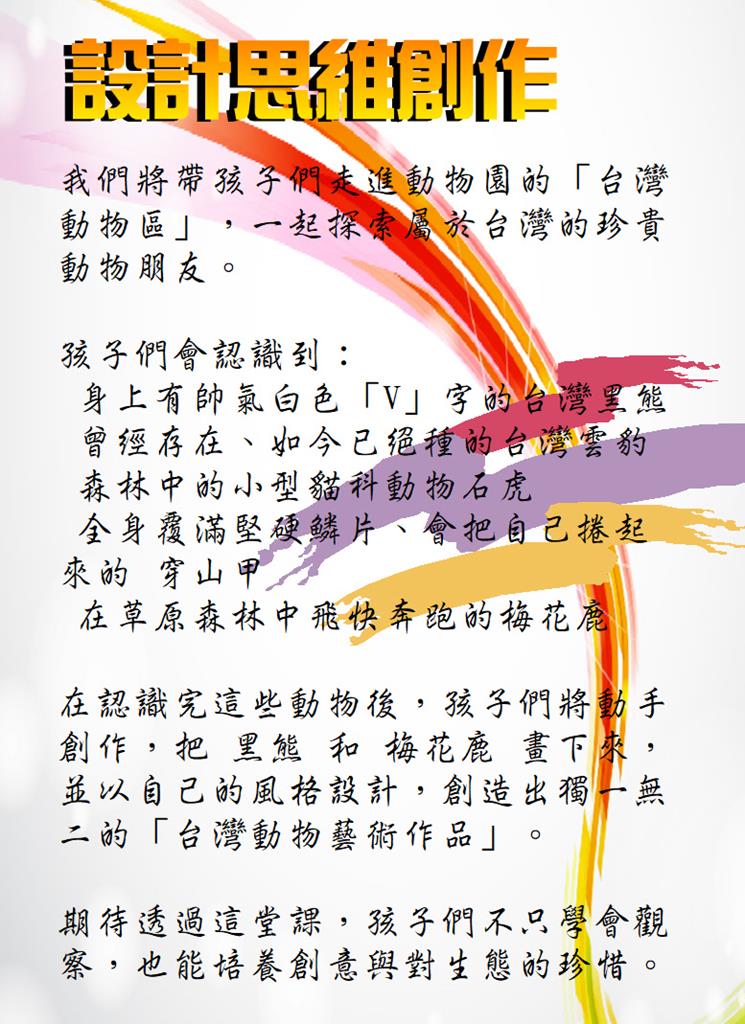 設計思維創作
我們將帶孩子們走進動物園的「台灣
動物區」，一起探索屬於台灣的珍貴
動物朋友。
孩子們會認識到：
身上有帥氣白色「V」字的台灣黑熊
曾經存在、如今已絕種的台灣雲豹
森林中的小型貓科動物石虎
全身覆滿堅硬鱗片、會把自己捲起
來的 穿山甲
在草原森林中飛快奔跑的梅花鹿
在認識完這些動物後，孩子們將動手
創作，把 黑熊 和 梅花鹿 畫下來，
並以自己的風格設計，創造出獨一無
二的「台灣動物藝術作品」。
期待透過這堂課，孩子們不只學會觀
察，也能培養創意與對生態的珍惜。